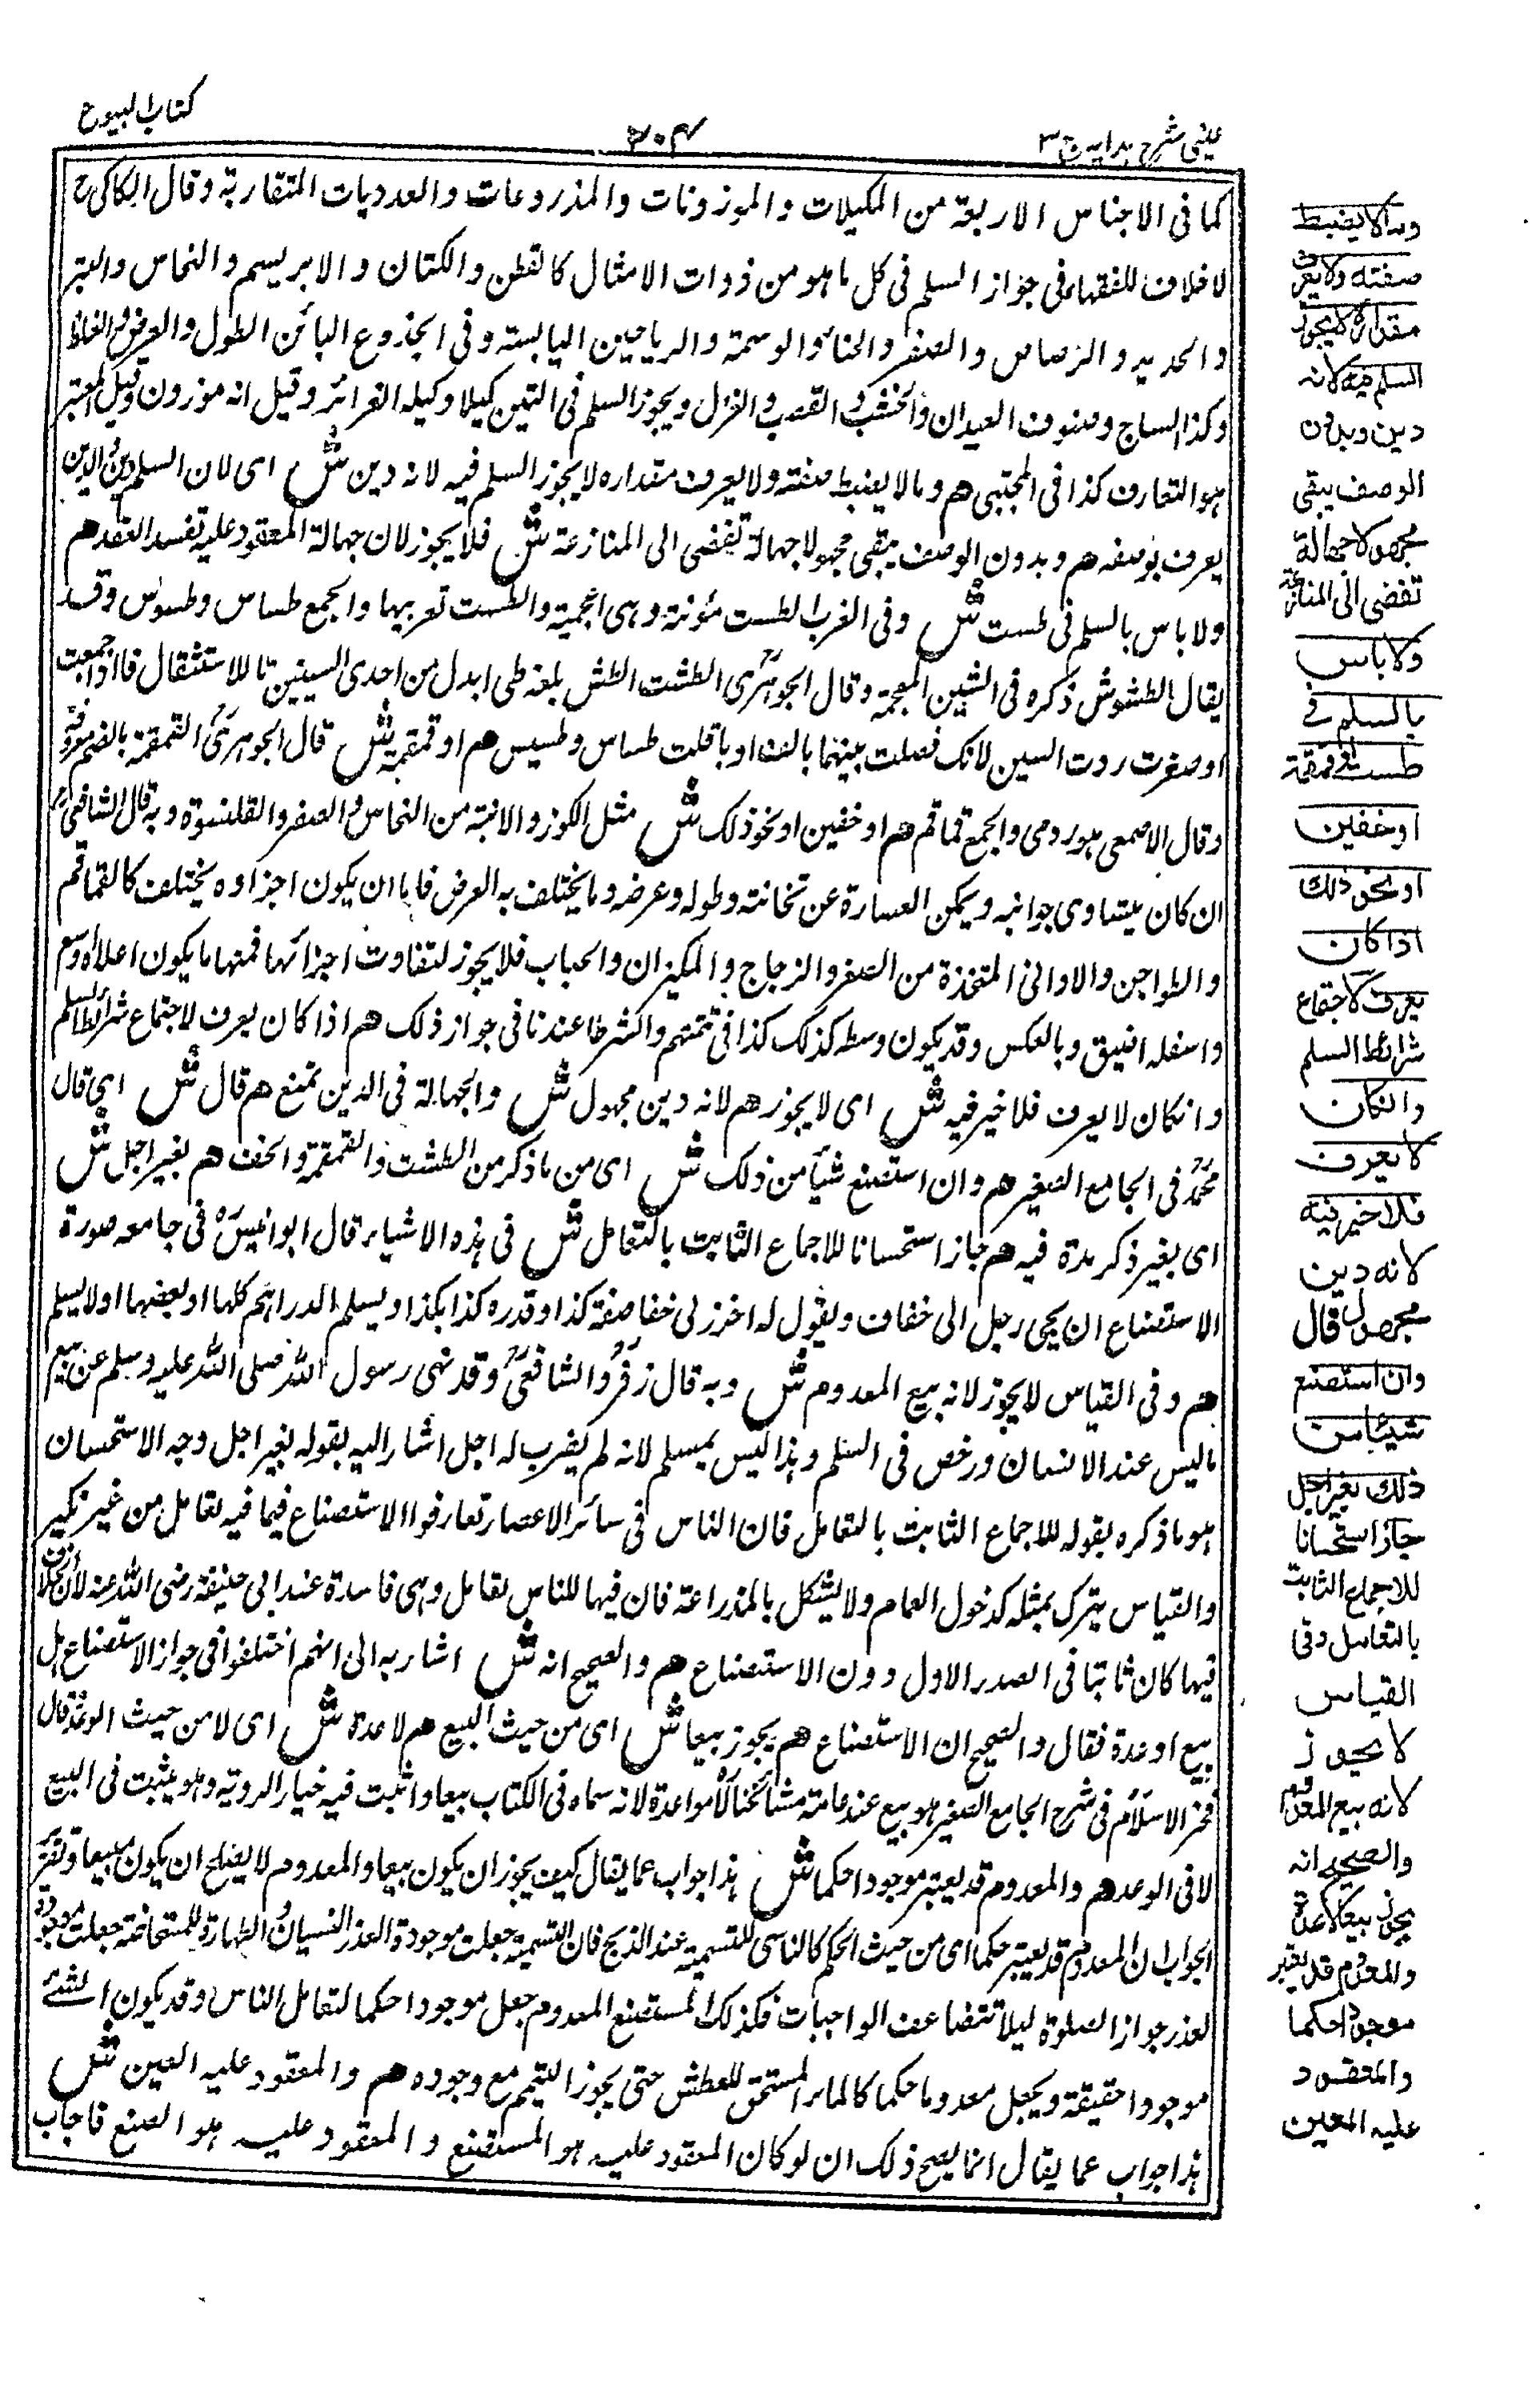 عینی شرح ہدایہ ج ۳
کتاب البیوع
کما فی الاجناس الاربعة من المکیلات والموزونات والمذروعات والعددیات المتقاربة وقال الکاکی ح
لاخلاف للفقہاء فی جواز السلم فی کل ماہو من ذوات الامثال کالقطن والکتان والابریسم والنحاس والتبر
والحدید والرصاص والصفر والحناء والوسمة والریاحین الیابسة وفی الجذوع البائن الطول والعرض والغلظ
وکذا الساج وصنوف العیدان والخشب والقصب والغزل ویجوز السلم فی التبن کیلا وکیلہ الغرائر وقیل انہ موزون وقیل المعتبر
ہو التعارف کذا فی المجتبی ھم ومالا یضبط صفتہ ولا یعرف مقدارہ لا یجوز السلم فیہ لانہ دین ش ای لان السلم دین والدین
یعرف بوصفہ ھم وبدون الوصف یبقی مجہولا جہالة تفضی الی المنازعة ش فلا یجوز لان جہالة المعقود علیہ تفسد العقد ھم
ولا باس بالسلم فی طست ش وفی المغرب الطست مؤنثة وہی اعجمیة والطست تعریبہا والجمع طساس وطسوس وقد
یقال الطشوش ذکرہ فی الشین المعجمة وقال الجوہری الطشت الطش بلغة طی ابدل من احدی السینین تا للاستثقال فاذا جمعت
او صغرت ردت السین لانک فصلت بینہما بالف او یا قلت طساس وطسیس ھم او قمقمة ش قال الجوہری القمقمة بالضم معروفة
وقال الاصمعی ہو رومی والجمع قماقم ھم او خفین او نحو ذلک ش مثل الکوز والانیة من النحاس والصفر والقلنسوة وبہ قال الشافعی
ان کان یتساوی جوانبہ ویمکن العبارة عن ثخانتہ وطولہ وعرضہ وما یختلف بہ الغرض فاما ان یکون اجزاوہ یختلف کالقماقم
والطواجن والاوانی المتخذة من الصفر والزجاج والکیزان والحباب فلا یجوز لتفاوت اجزائہا فمنہا ما یکون اعلاہ اوسع
واسفلہ اضیق وبالعکس وقد یکون وسطہ کذلک کذا فی تتمتہم والشرط عندنا فی جواز ذلک ھم اذا کان یعرف لاجتماع شرائط السلم
وان کان لا یعرف فلا خیر فیہ ش ای لا یجوز ھم لانہ دین مجہول ش والجہالة فی الدین تمنع ھم قال ش ای قال
محمد فی الجامع الصغیر ھم وان استصنع شیأ من ذلک ش ای من ما ذکر من الطشت والقمقمة والخف ھم بغیر اجل ش
ای بغیر ذکر مدة فیہ ھم جاز استحسانا للاجماع الثابت بالتعامل ش فی ہذہ الاشیاء قال ابو الیسر فی جامعہ صورة
الاستصناع ان یجی رجل الی خفاف ویقول لہ اخرز لی خفا صفتہ کذا وقدرہ کذا بکذا ویسلم الدراہم کلہا او بعضہا او لا یسلم
ھم وفی القیاس لا یجوز لانہ بیع المعدوم ش وبہ قال زفر والشافعی وقد نہی رسول اللہ صلی اللہ علیہ وسلم عن بیع
مالیس عند الانسان ورخص فی السلم وہذا لیس بمسلم لانہ لم یضرب لہ اجل اشار الیہ بقولہ بغیر اجل وجہ الاستحسان
ہو ما ذکرہ بقولہ للاجماع الثابت بالتعامل فان الناس فی سائر الاعصار تعارفوا الاستصناع فیما فیہ تعامل من غیر نکیر
والقیاس یترک بمثلہ کدخول الحمام ولا یشکل بالمزارعة فان فیہا للناس تعامل وہی فاسدة عند ابی حنیفة رضی اللہ عنہ لان الخلاف
فیہا کان ثابتا فی الصدر الاول دون الاستصناع ھم والصحیح انہ ش اشار بہ الی انہم اختلفوا فی جواز الاستصناع ہل
بیع او عدة فقال والصحیح ان الاستصناع ھم یجوز بیعا ش ای من حیث البیع ھم لا عدة ش ای لا من حیث الوعد قال
فخر الاسلام فی شرح الجامع الصغیر ہو بیع عند عامة مشائخنا لا مواعدة لانہ سماہ فی الکتاب بیعا واثبت فیہ خیار الرویة وہو یثبت فی البیع
لا فی الوعد ھم والمعدوم قد یعتبر موجودا حکما ش ہذا جواب عما یقال کیف یجوز ان یکون بیعا والمعدوم لا یصلح ان یکون مبیعا وتقریر
الجواب ان المعدوم قد یعتبر حکما ای من حیث الحکم کالناسی للتسمیة عند الذبح فان التسمیة جعلت موجودة العذر النسیان والطہارة للمستحاضة جعلت موجودة
لعذر جواز الصلوة لیلا تتضاعف الواجبات فکذلک المستصنع المعدوم جعل موجودا حکما لتعامل الناس وقد یکون الشئ
موجودا حقیقة ویجعل معدوما حکما کالماء المستحق للعطش حتی یجوز التیمم مع وجودہ ھم والمعقود علیہ العین ش
ہذا جواب عما یقال انما یصح ذلک ان لو کان المعقود علیہ ہو المستصنع والمعقود علیہ ہو الصنع فاجاب
ومالا یضبط
صفتہ ولا یعرف
مقدارہ لا یجوز
السلم فیہ لانہ
دین وبدون
الوصف یبقی
مجھولا جھالة
تفضی الی المنازعة
ولا باس
بالسلم فی
طست او قمقمة
او خفین
او نحو ذلک
اذا کان
یعرف لاجتماع
شرائط السلم
وان کان
لا یعرف
فلا خیر فیہ
لانہ دین
مجھول قال
وان استصنع
شیئا من
ذلک بغیر اجل
جاز استحسانا
للاجماع الثابت
بالتعامل وفی
القیاس
لا یجوز
لانہ بیع المعدوم
والصحیح انہ
یجوز بیعا لا عدة
والمعدوم قد یعتبر
موجودا حکما
والمعقود
علیہ العین